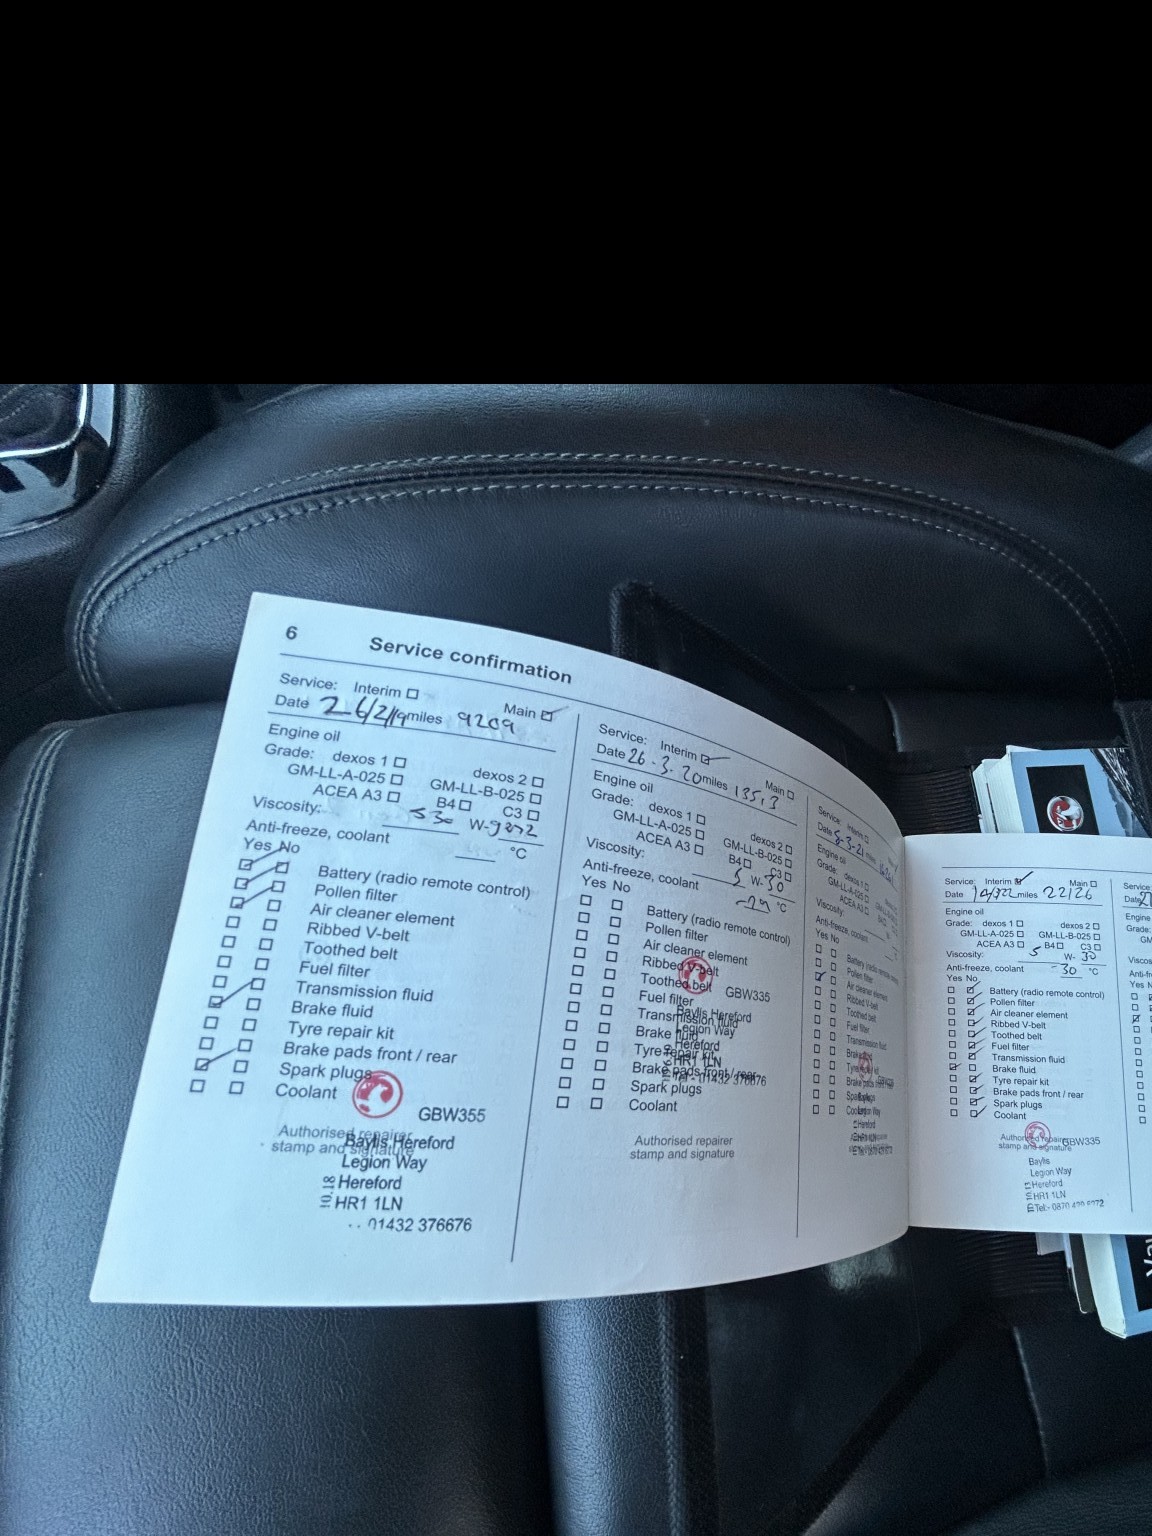 6 Service confirmation
Service: Interim Main
Date 26/2/19 miles 9209
Engine oil
Grade: dexos 1 dexos 2
GM-LL-A-025 GM-LL-B-025
ACEA A3 B4 C3
Viscosity: 530 W-
Anti-freeze, coolant °C
Yes No
Battery (radio remote control)
Pollen filter
Air cleaner element
Ribbed V-belt
Toothed belt
Fuel filter
Transmission fluid
Brake fluid
Tyre repair kit
Brake pads front / rear
Spark plugs
Coolant
GBW355
Authorised repairer
stamp and signature
Baylis Hereford
Legion Way
Hereford
HR1 1LN
01432 376676
Service: Interim Main
Date 26.3.20 miles 13513
Engine oil
Grade: dexos 1 dexos 2
GM-LL-A-025 GM-LL-B-025
ACEA A3 B4 C3
Viscosity: 5 W-30
Anti-freeze, coolant °C
Yes No
Battery (radio remote control)
Pollen filter
Air cleaner element
Ribbed V-belt
Toothed belt
Fuel filter
Transmission fluid
Brake fluid
Tyre repair kit
Brake pads front / rear
Spark plugs
Coolant
GBW335
Baylis Hereford
Legion Way
Hereford
HR1 1LN
Tel:- 01432 376676
Authorised repairer
stamp and signature
Service: Interim
Date 5-3-21
Engine oil
Grade: dexos 1
GM-LL-A-025
ACEA A3
Viscosity:
Anti-freeze, coolant
Yes No
Battery (radio remote
Pollen filter
Air cleaner element
Ribbed V-belt
Toothed belt
Fuel filter
Transmission fluid
Brake fluid
Brake pads front / rear
Hereford
Service: Interim Main
Date miles 22126
Engine oil
Grade: dexos 1 dexos 2
GM-LL-A-025 GM-LL-B-025
ACEA A3 B4 C3
Viscosity: 5 W- 30
Anti-freeze, coolant -30 °C
Yes No
Battery (radio remote control)
Pollen filter
Air cleaner element
Ribbed V-belt
Toothed belt
Fuel filter
Transmission fluid
Brake fluid
Tyre repair kit
Brake pads front / rear
Spark plugs
Coolant
Authorised repairer
stamp and signature
GBW335
Baylis
Legion Way
Hereford
HR1 1LN
Service:
Date
Engine
Grade:
GM-